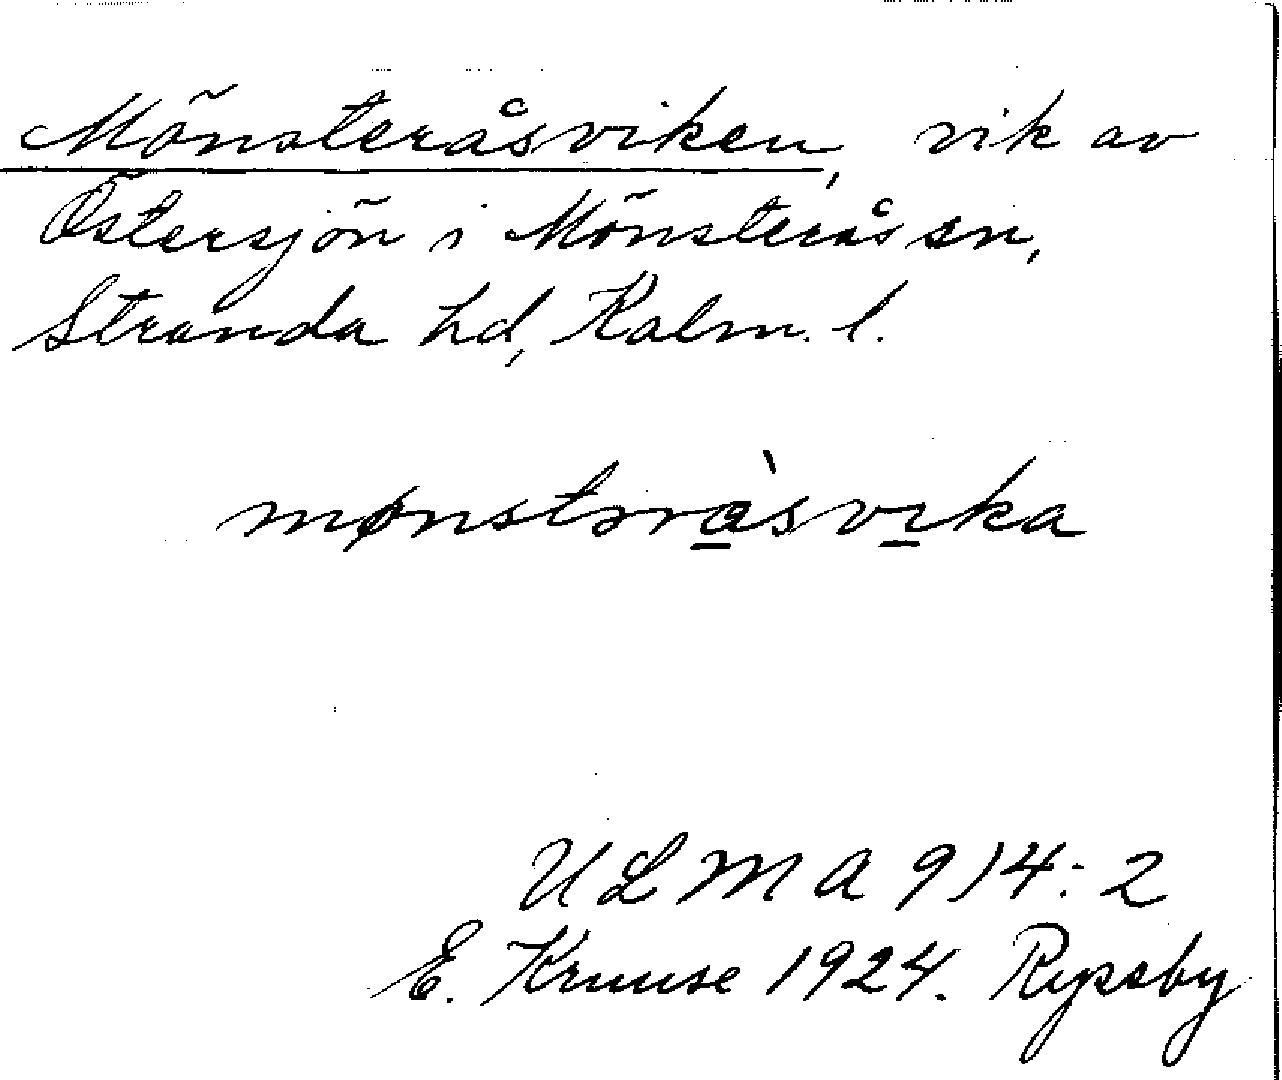 Mönsteråsviken, vik av
Östersjön i Mönsterås sn,
Stranda hd, Kalm. l.
mønstrràsvıka
ULMA 914:2
E. Kruuse 1924. Ryssby